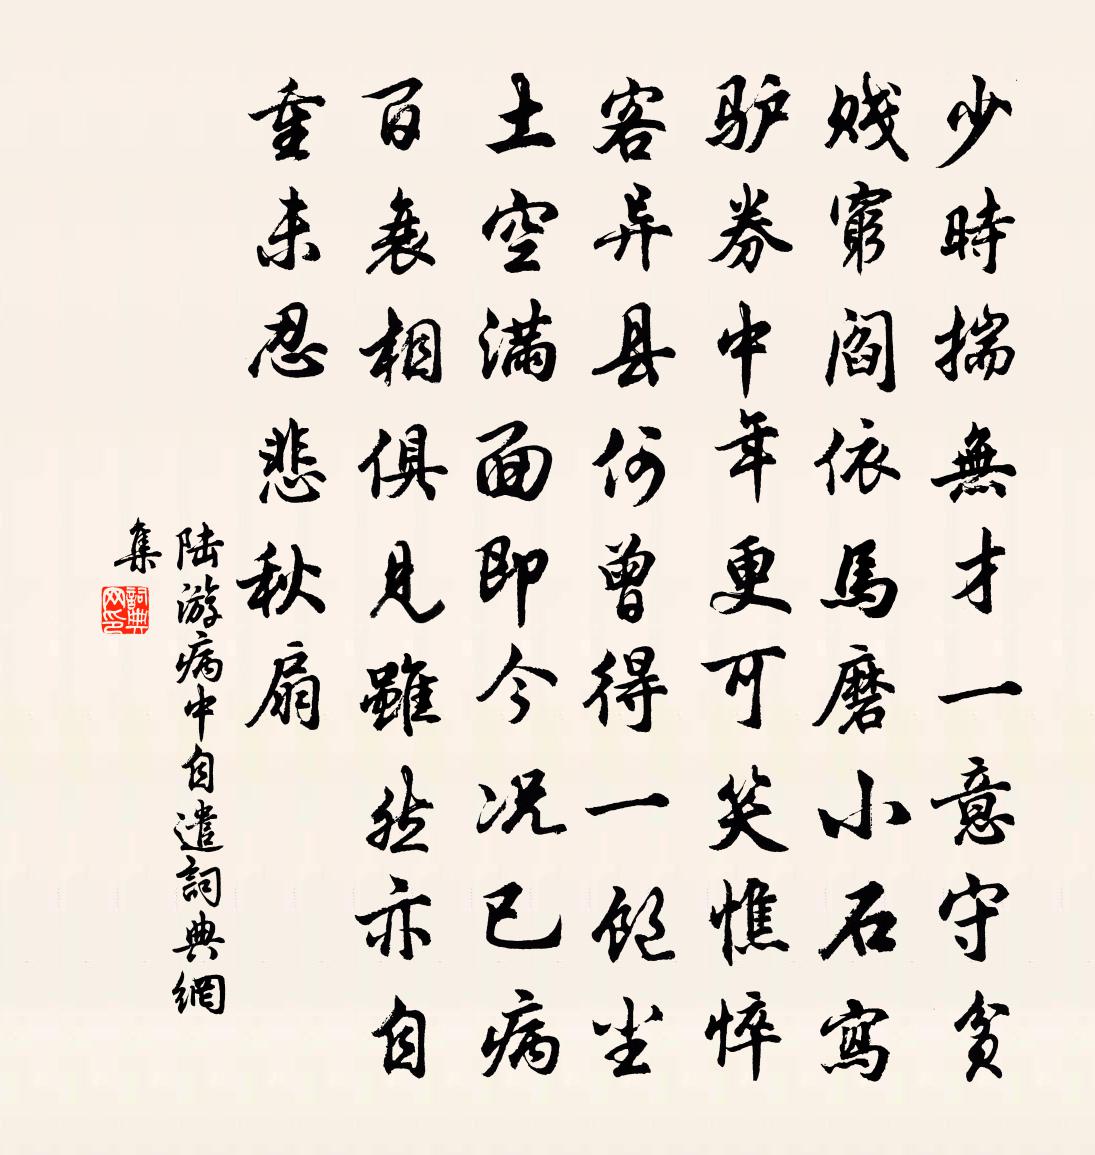 少時揣無才一意守貧
贱窮閻依馬磨小石寫
驴券中年更可笑憔悴
客异县何曾得一飽坐
土空满面即今况已病
百衰相俱見雖然亦自
重未忍悲秋扇
陆游病中自遣詞典網
集
詞典网印